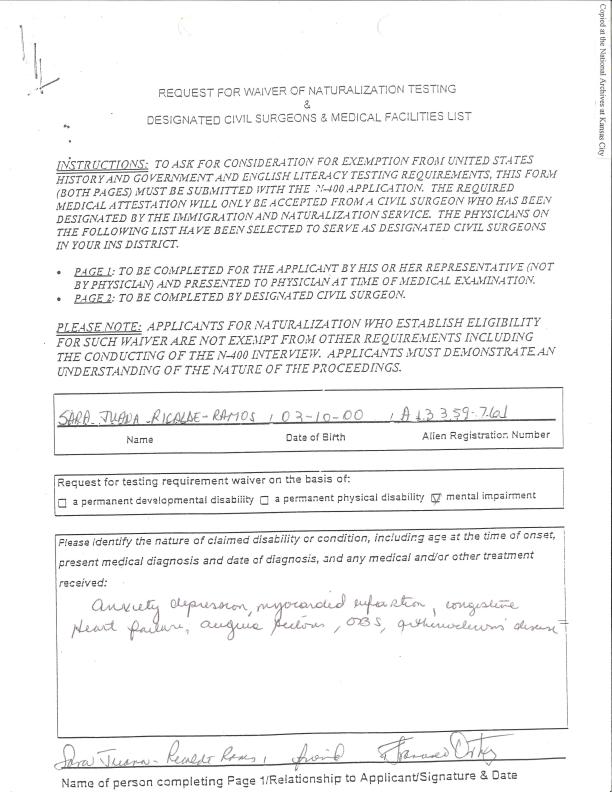 Copied at the National Archives at Kansas City
REQUEST FOR WAIVER OF NATURALIZATION TESTING
&
DESIGNATED CIVIL SURGEONS & MEDICAL FACILITIES LIST
INSTRUCTIONS: TO ASK FOR CONSIDERATION FOR EXEMPTION FROM UNITED STATES
HISTORY AND GOVERNMENT AND ENGLISH LITERACY TESTING REQUIREMENTS, THIS FORM
(BOTH PAGES) MUST BE SUBMITTED WITH THE N-400 APPLICATION. THE REQUIRED
MEDICAL ATTESTATION WILL ONLY BE ACCEPTED FROM A CIVIL SURGEON WHO HAS BEEN
DESIGNATED BY THE IMMIGRATION AND NATURALIZATION SERVICE. THE PHYSICIANS ON
THE FOLLOWING LIST HAVE BEEN SELECTED TO SERVE AS DESIGNATED CIVIL SURGEONS
IN YOUR INS DISTRICT.
• PAGE 1: TO BE COMPLETED FOR THE APPLICANT BY HIS OR HER REPRESENTATIVE (NOT
BY PHYSICIAN) AND PRESENTED TO PHYSICIAN AT TIME OF MEDICAL EXAMINATION.
• PAGE 2: TO BE COMPLETED BY DESIGNATED CIVIL SURGEON.
PLEASE NOTE: APPLICANTS FOR NATURALIZATION WHO ESTABLISH ELIGIBILITY
FOR SUCH WAIVER ARE NOT EXEMPT FROM OTHER REQUIREMENTS INCLUDING
THE CONDUCTING OF THE N-400 INTERVIEW. APPLICANTS MUST DEMONSTRATE AN
UNDERSTANDING OF THE NATURE OF THE PROCEEDINGS.
SARA JUANA RICALDE-RAMOS 03-10-00 A13359-761
Name Date of Birth Alien Registration Number
Request for testing requirement waiver on the basis of:
a permanent developmental disability a permanent physical disability mental impairment
Please identify the nature of claimed disability or condition, including age at the time of onset,
present medical diagnosis and date of diagnosis, and any medical and/or other treatment
received:
Anxiety depression, myocardial infarction, congestive
Heart failure, angina pectoris, OBS, disease
Sara Juana Ricalde Ramos, friend
Name of person completing Page 1/Relationship to Applicant/Signature & Date